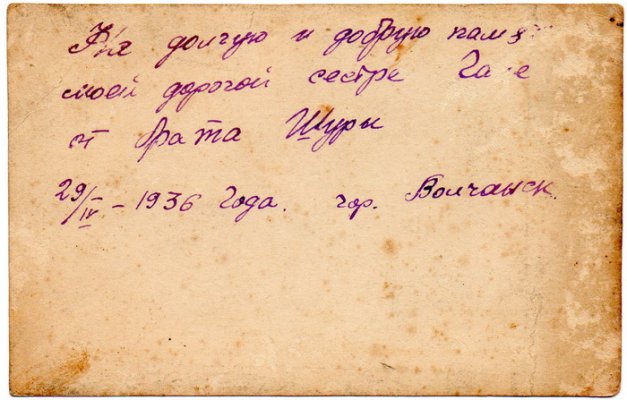 На долгую и добрую пам
моей дорогой сестре Гале
от брата Шуры
29/IV - 1936 Года. гор. Волчанск.